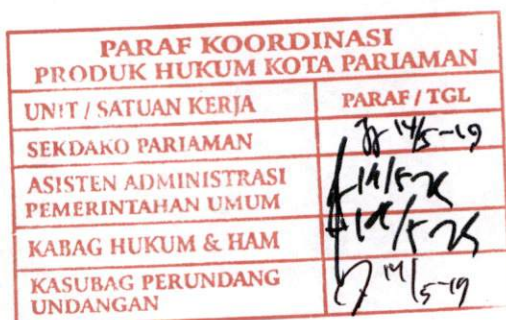 PARAF KOORDINASI
PRODUK HUKUM KOTA PARIAMAN
UNIT / SATUAN KERJA PARAF / TGL
SEKDAKO PARIAMAN 14/5-19
ASISTEN ADMINISTRASI
PEMERINTAHAN UMUM 14/5
KABAG HUKUM & HAM
KASUBAG PERUNDANG
UNDANGAN 14/5-19